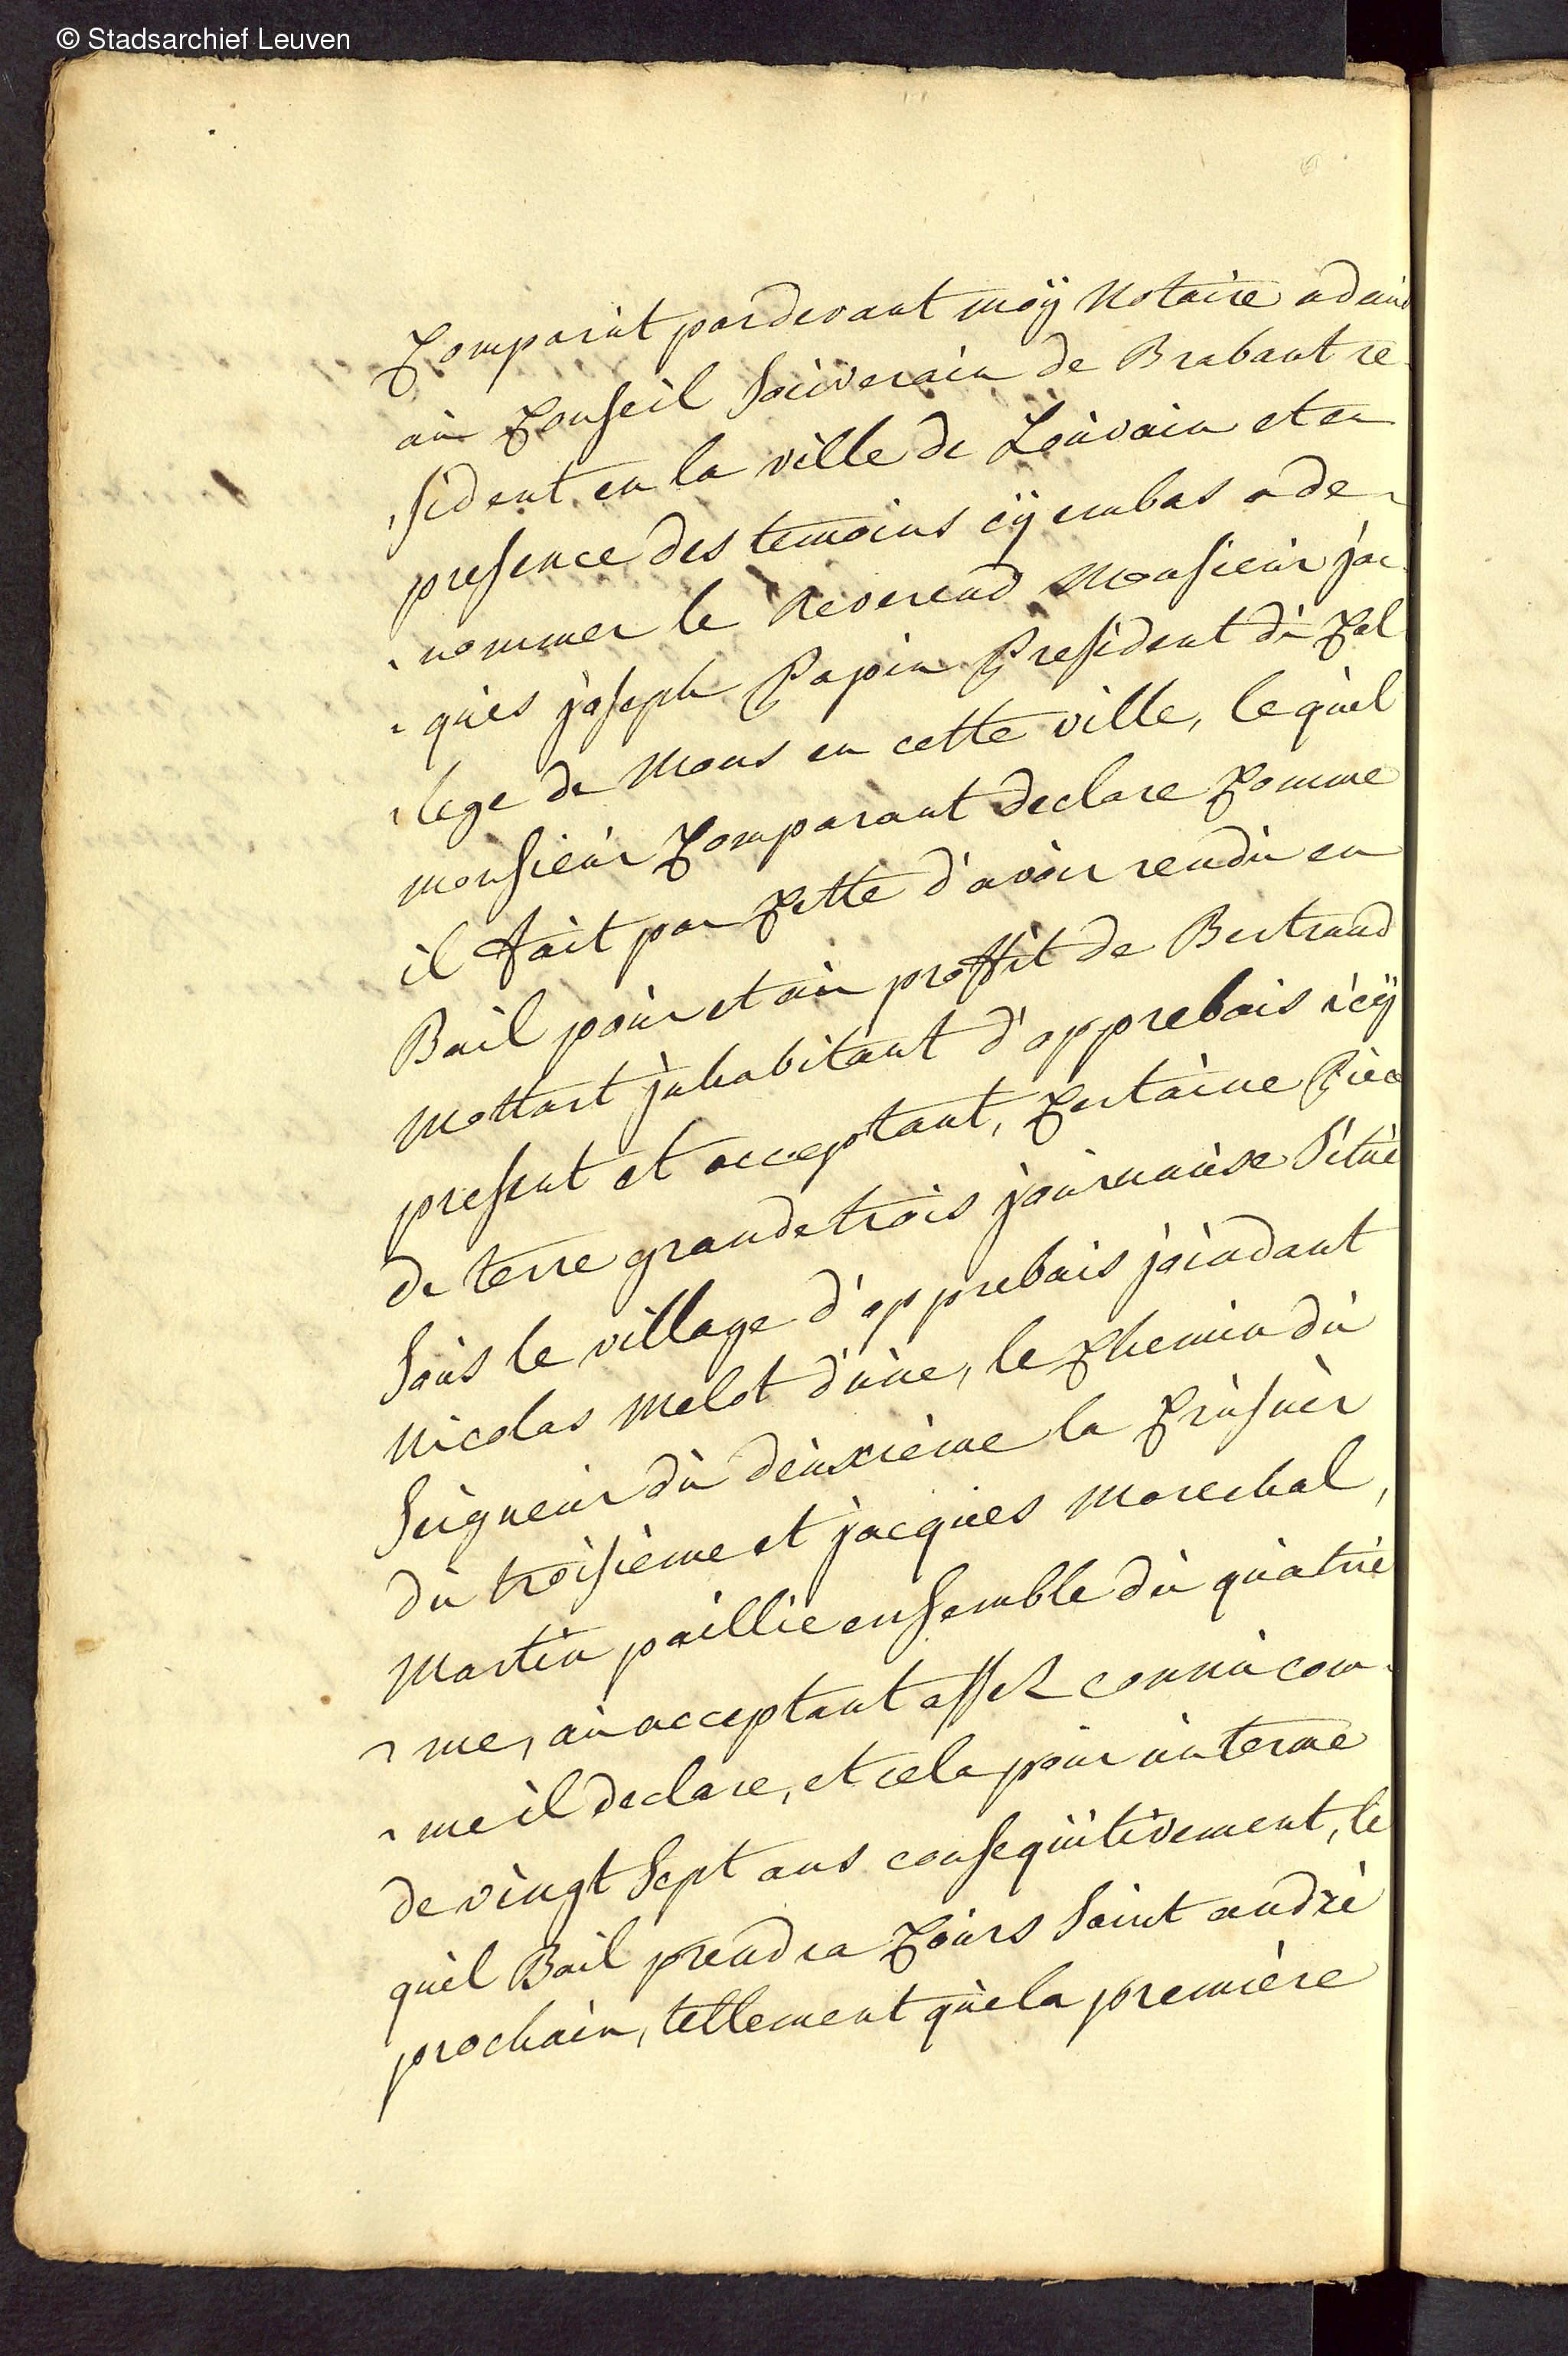 © Stadsarchief Leuven
Comparut pardevant moÿ Notaire admis
au Conseil Souverain de Brabant re-
sident en la ville de Louvain et en
presence des temoins cÿ embas a de-
nommer le Reverend Monsieur jac-
ques joseph Papin President du Col
lege de Mons en cette ville, lequel
monsieur Comparant declare Comme
il fait par Cette d'avoir rendu en
Bail pour et au proffit de Bertrand
Mottart jnhabitant d'opprebais icÿ
present et acceptant, Certaine Piece
de terre grande trois journaux Situé
Sous le village d'opprebais joindant
Nicolas Melot d'une, le Chemin du
Seigneur du deuxieme la
du troisieme et jacques Marechal,
Martin paillie ensemble du quatrie
me, au acceptant assez connu com-
me il declare, et cela pour un terme
de vingt Sept ans consequitivement, le
quel Bail prendra Cours Saint andré
prochain, tellement que la premiere